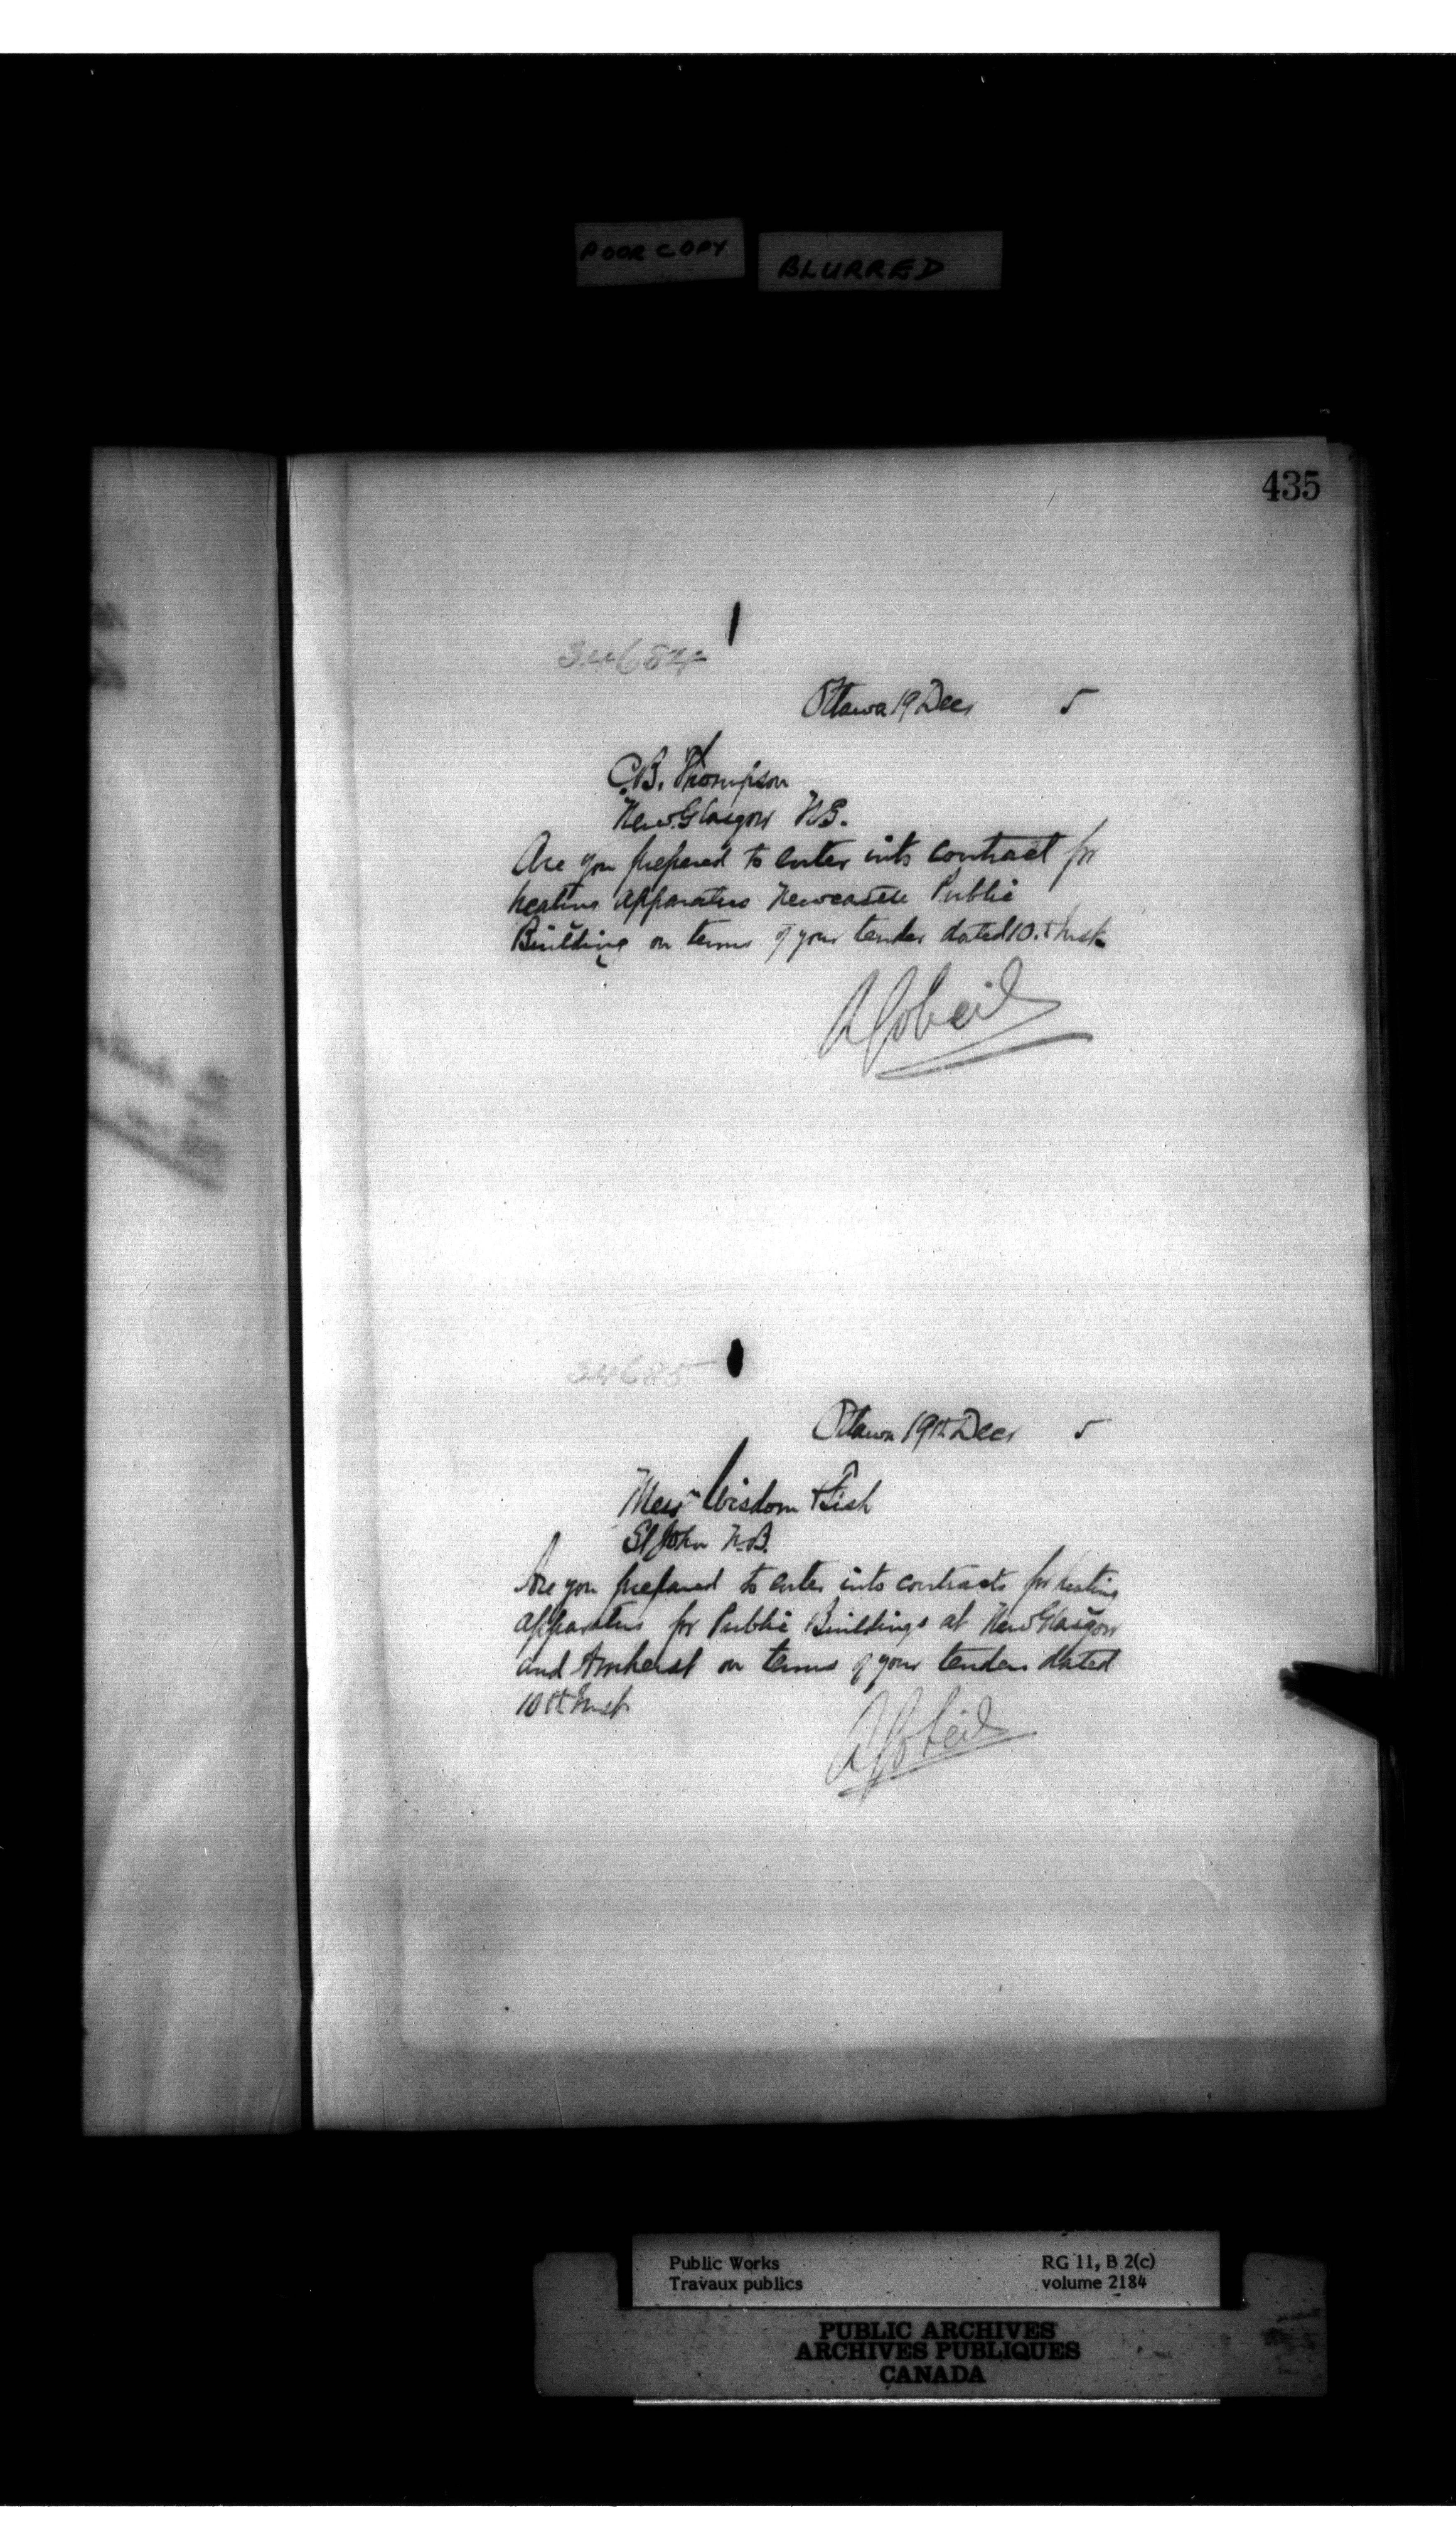 POOR COPY BLURRED
435
34684
Ottawa 19 Decr 5
C.B. Thompson
New Glasgow N.S.
Are you prepared to enter into contract for
heating apparatus Newcastle Public
Building on terms of your tender dated 10th inst.
A Gobeil
34685
Ottawa 19th Decr 5
Messrs Wisdom & Fish
St John N.B.
Are you prepared to enter into contracts for heating
apparatus for Public Buildings at New Glasgow
and Amherst on terms of your tenders dated
10th inst
A Gobeil
Public Works RG 11, B 2(c)
Travaux publics volume 2184
PUBLIC ARCHIVES
ARCHIVES PUBLIQUES
CANADA